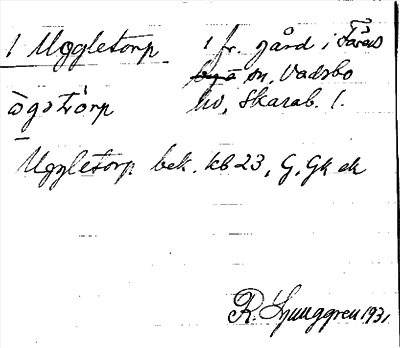 1 Uggletorp 1 fr. gård i Fåreds
sn, Vadsbo
hd, Skarab. l.
Uggletorp bek. kb 23, G, Gk ek
R. Ljunggren 1931